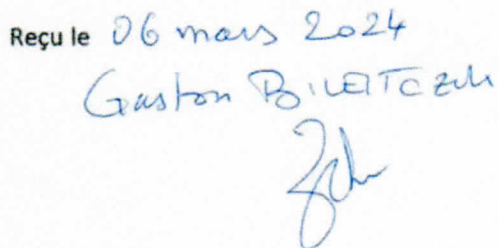 Reçu le 06 mars 2024
Gaston